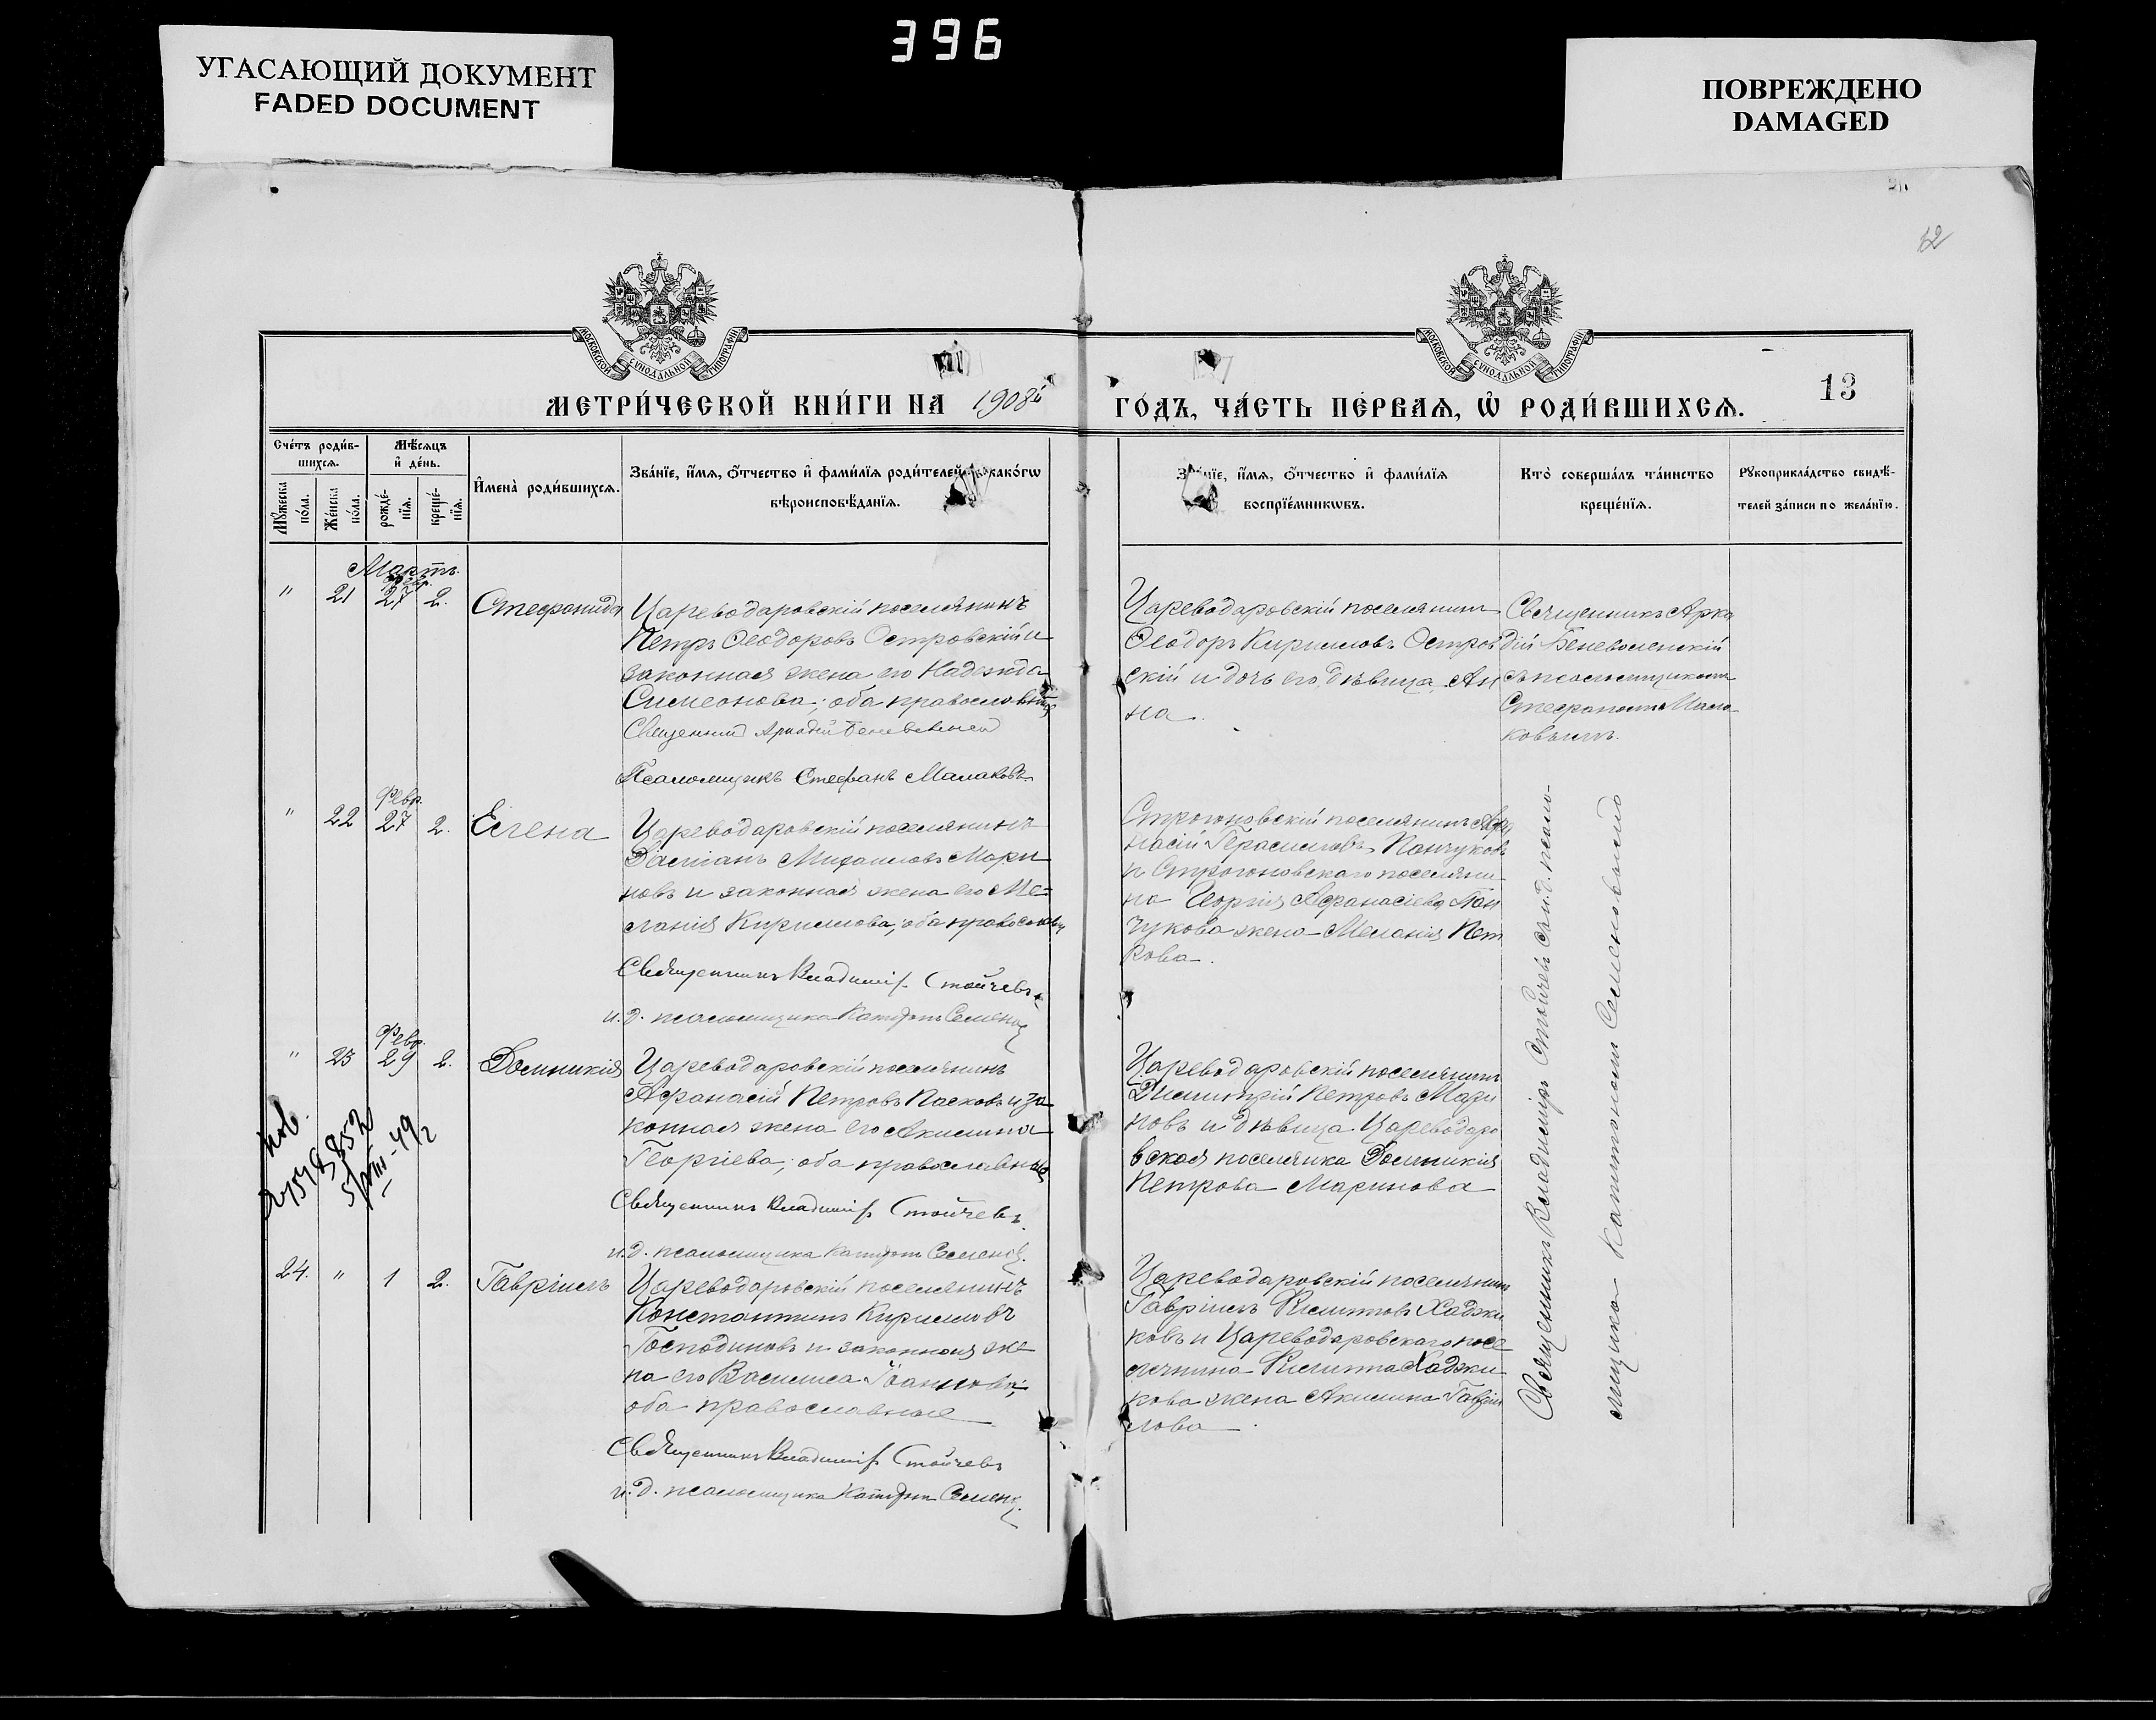 396
УГАСАЮЩИЙ ДОКУМЕНТ
FADED DOCUMENT
ПОВРЕЖДЕНО
DAMAGED
12
МОСКОВСКОЙ СѴНОДАЛЬНОЙ ТИПОГРАФІИ
МОСКОВСКОЙ СѴНОДАЛЬНОЙ ТИПОГРАФІИ
МЕТРИ́ЧЕСКОЙ КНИ́ГИ НА 1908й
ГО́ДЪ, ЧА́СТЬ ПЕ́РВАѦ, Ѡ҆ РОДИ́ВШИХСѦ.
13
Сче́тъ роди́в-
шихсѧ.
Мꙋ́жеска
по́ла.
Же́нска
по́ла.
Мѣ́сѧцъ
и҆ де́нь.
рожде́-
нїѧ.
креще́-
нїѧ.
И҆мена̀ роди́вшихсѧ.
Зва́нїе, и҆́мѧ, ѻ҆́тчество и҆ фами́лїѧ роди́телей, како́гѡ
вѣроисповѣ́данїѧ.
Зва́нїе, и҆́мѧ, ѻ҆́тчество и҆ фами́лїѧ
воспрїе́мникѡвъ.
Кто̀ соверша́лъ та́инство
креще́нїѧ.
Рꙋкоприкла́дство свидѣ́-
телей за́писи по жела́нїю.
Мартъ.
" 21 Февр. 27 2. Стефанида
Цареводаровскій поселянинъ
Петръ Ѳеодоровъ Островскій и
законная жена его Надежда
Симеонова; оба православные
Священникъ Аркадій Беневоленскій
Псаломщикъ Стефанъ Малаковъ
Цареводаровскій поселянинъ
Ѳеодоръ Кирилловъ Остров
скій и дочь его дѣвица Ан
на.
Священникъ Арка
дій Беневоленскій
съ псаломщикомъ
Стефаномъ Мала-
ковымъ.
" 22 Февр. 27 2. Елена
Цареводаровскій поселянинъ
Даміанъ Михаиловъ Мари
новъ и законная жена его Ме-
ланія Кириллова; оба православн
Священникъ Владиміръ Стойчевъ
и. д. псаломщика Капитонъ Семенов
Строгоновскій поселянинъ Афа
насій Герасимовъ Панчуковъ
и Строгоновскаго поселяни
на Георгія Афанасіева Пан
чукова жена Меланія Пет
рова.
" 23 Февр. 29 2. Домникія
Цареводаровскій поселянинъ
Афанасій Петровъ Пасковъ и за
конная жена его Акилина
Георгіева; оба православные
Священникъ Владиміръ Стойчевъ
и. д. псаломщика Капитонъ Семенов.
Цареводаровскій поселянинъ
Димитрій Петровъ Мари
новъ и дѣвица Цареводаро
вская поселянка Домникія
Петрова Маринова
24. " 1 2. Гавріилъ
Цареводаровскій поселянинъ
Константинъ Кирилловъ
Господиновъ и законная же
на его Василиса Іоаннова;
оба православные
Священникъ Владиміръ Стойчевъ
и. д. псаломщика Капитонъ Семенов.
Цареводаровскій поселянинъ
Гавріилъ Филипповъ Хаджи
ковъ и Цареводаровскаго посе
лянина Филиппа Хаджи
кова жена Акилина Гаврiи
лова.
Священникъ Владиміръ Стойчевъ съ и. д. псало-
мщика Капитономъ Семеновымъ